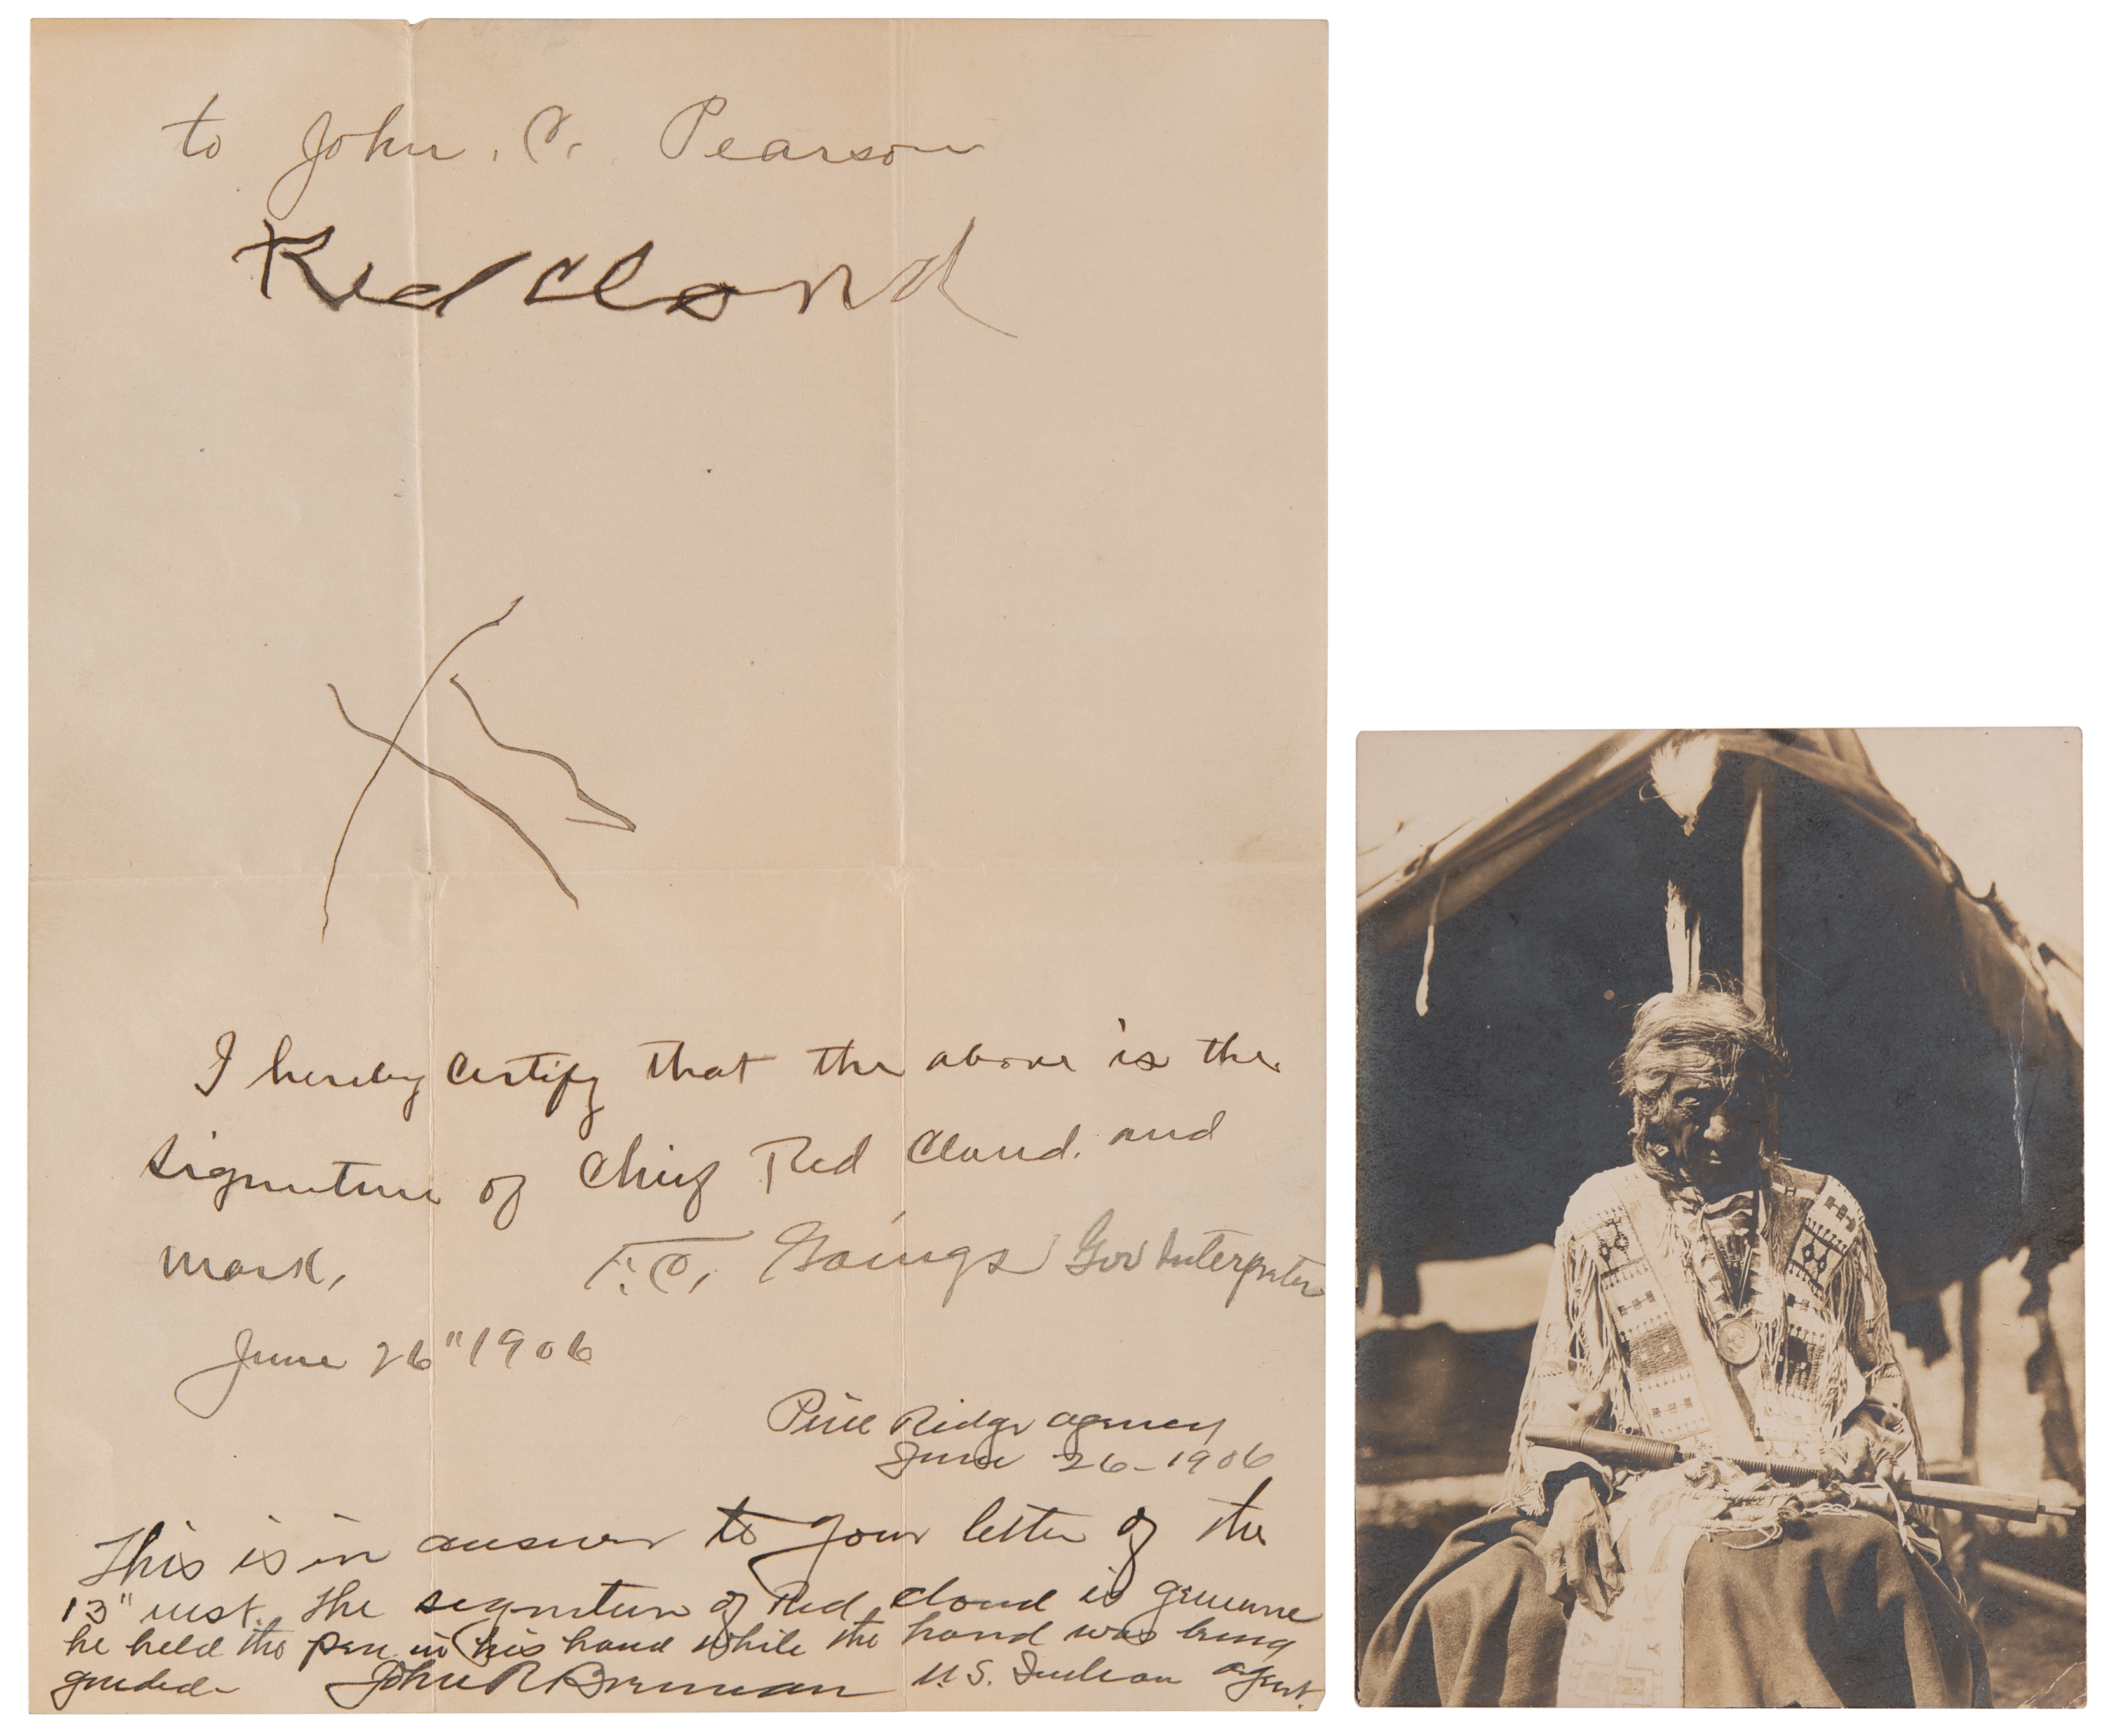 to John. C. Pearson
Red Cloud
I hereby certify that the above is the
signature of Chief Red Cloud. and
mark,
F. C. Goings Gov Interpreter
June 26" 1906
Pine Ridge agency
June 26-1906
This is in answer to your letter of the
13" inst. The signature of Red Cloud is genuine
he held the pen in his hand while the hand was being
guided- John R Brennan U.S. Indian agent.